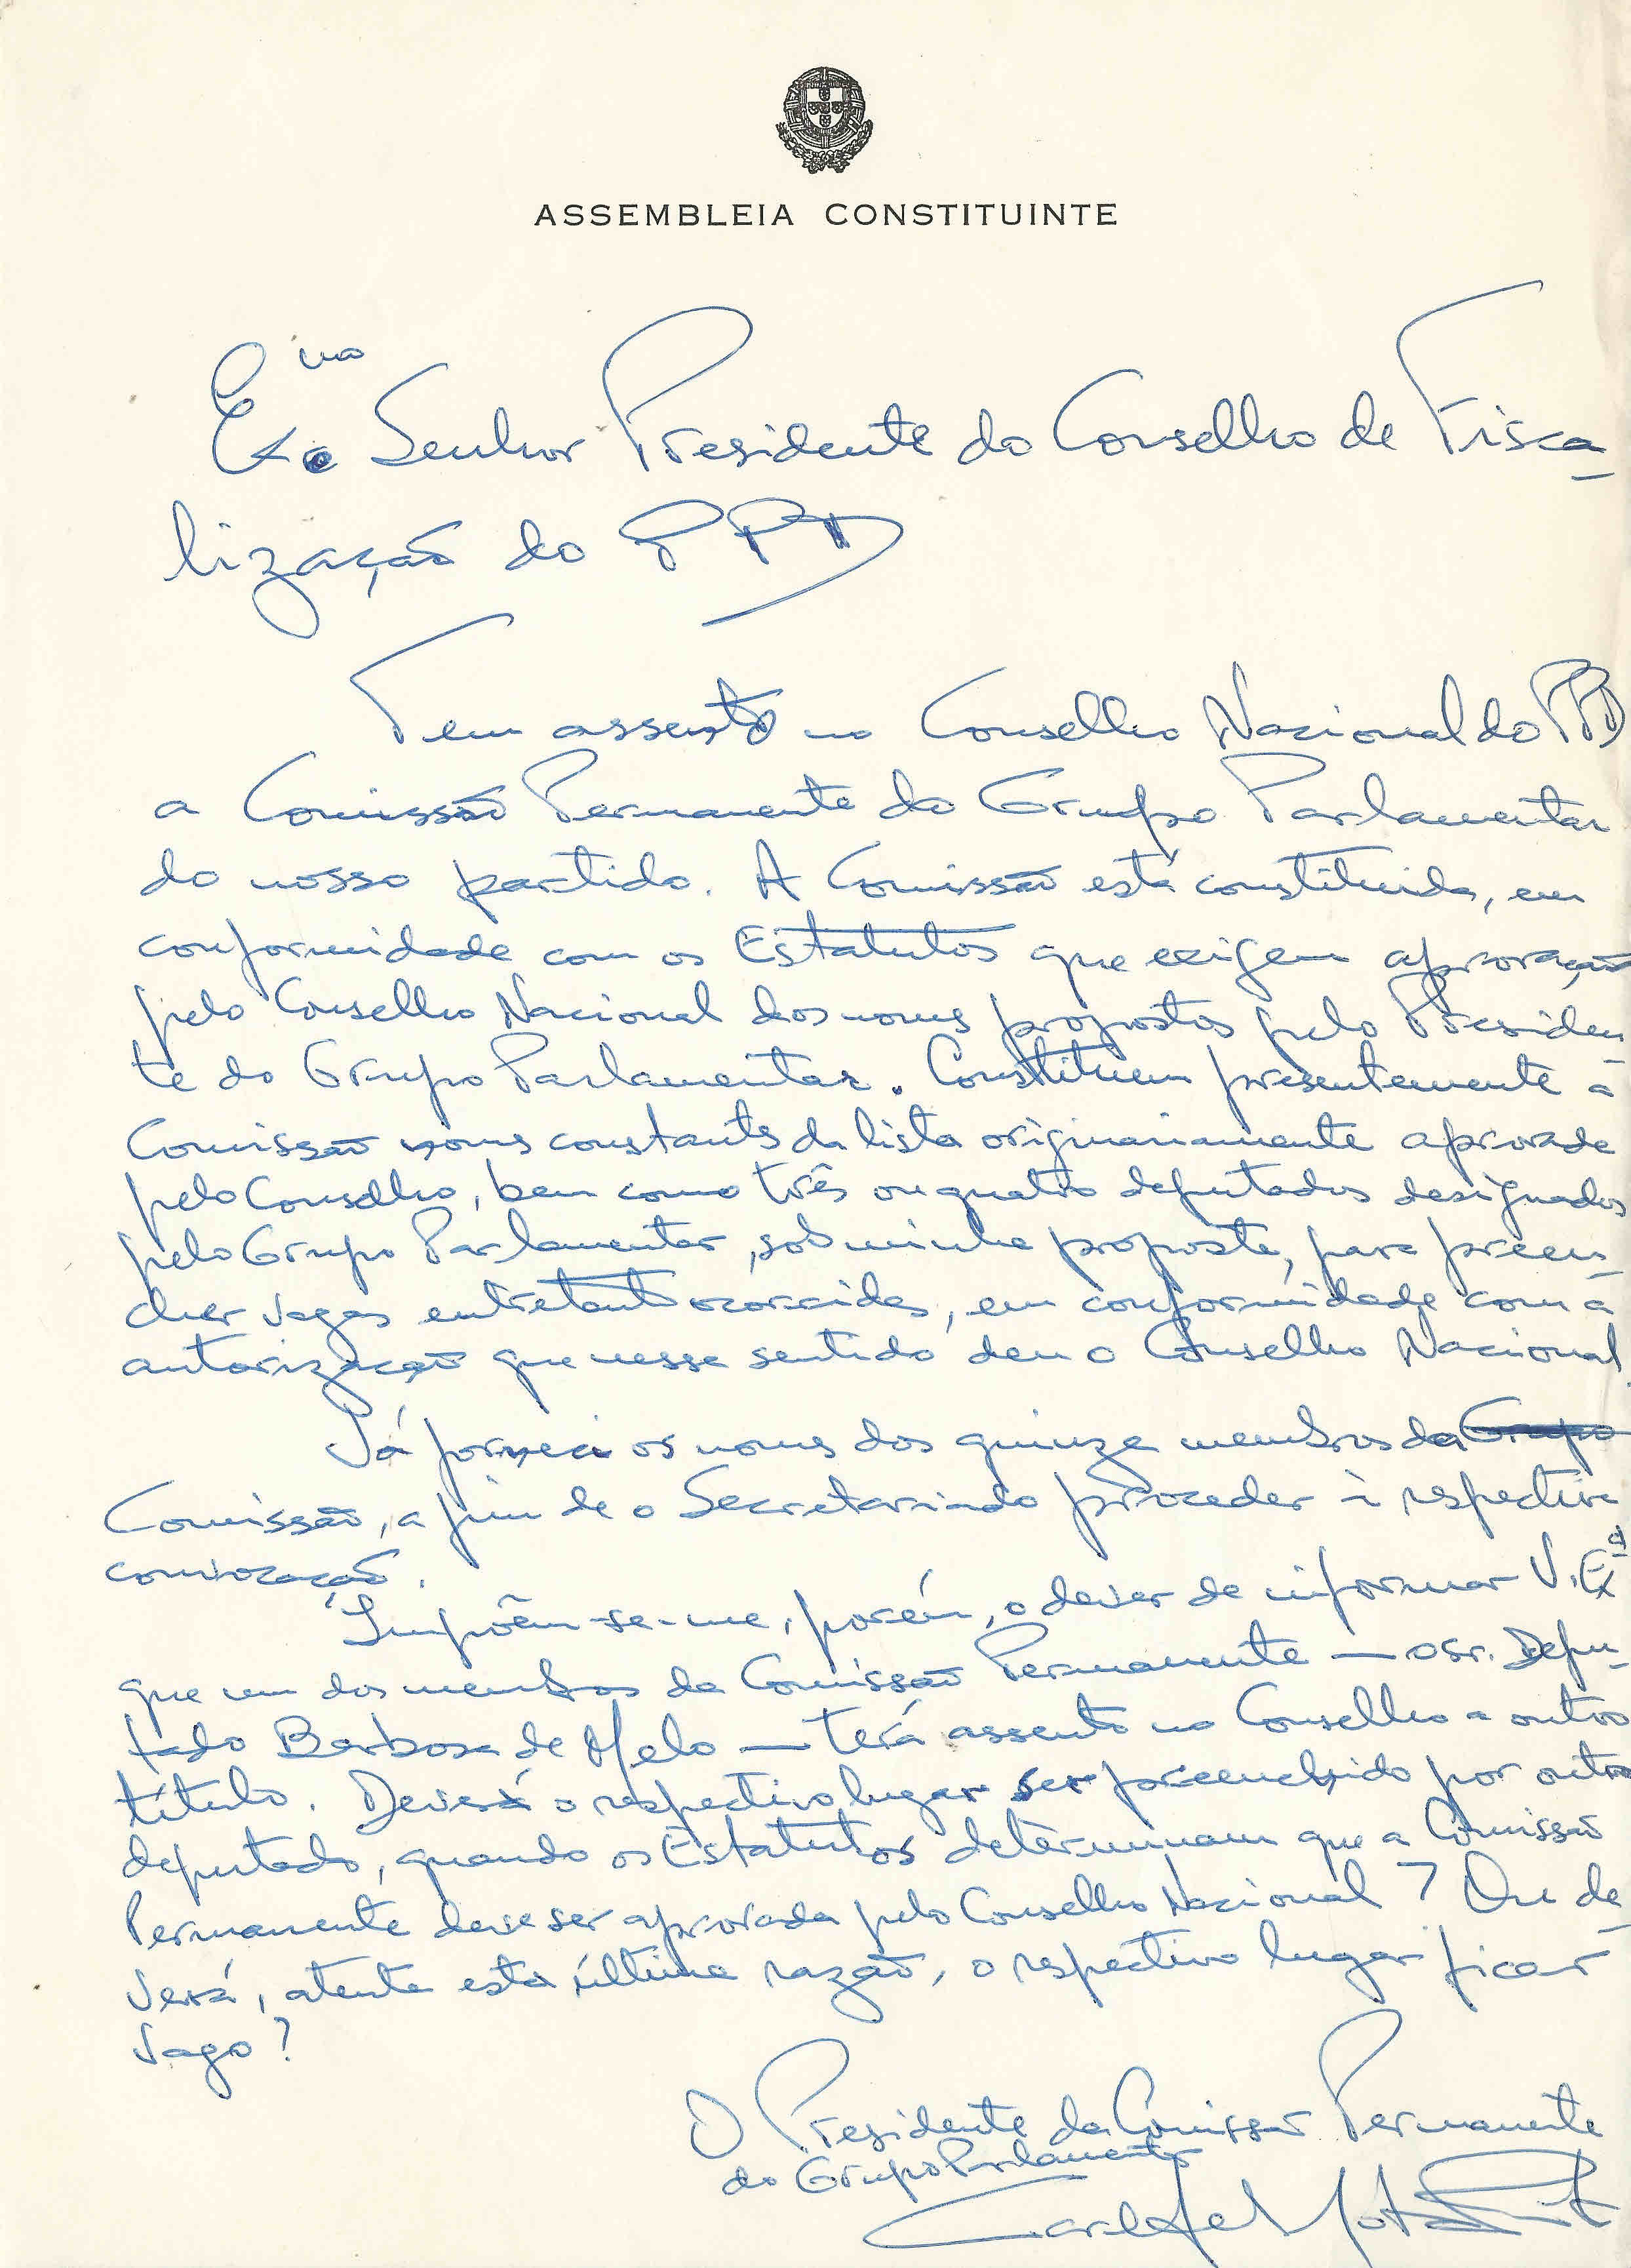 ASSEMBLEIA CONSTITUINTE
Exmo Senhor Presidente do Conselho de Fisca-
lização do PPD
Tem assento no Conselho Nacional do PPD
a Comissão Permanente do Grupo Parlamentar
do nosso partido. A Comissão está constituida, em
conformidade com os Estatutos que exigem aprovação
pelo Conselho Nacional dos nomes propostos pelo Presiden-
te do Grupo Parlamentar. Constituem presentemente a
Comissão nomes constantes da lista originariamente aprovada
pelo Conselho, bem como três ou quatro deputados designados
pelo Grupo Parlamentar, sob minha proposta, para preen-
cher vagas entretanto ocorridas, em conformidade com a
autorização que nesse sentido deu o Conselho Nacional.
Já forneci os nomes dos quinze membros da Grupo
Comissão, a fim de o Secretariado proceder à respectiva
convocação.
Impõem-se-me, porém, o dever de informar V. Exª
que um dos membros da Comissão Permanente — o sr. Depu-
tado Barbosa de Melo — terá assento no Conselho a outro
título. Deverá o respectivo lugar ser preenchido por outro
deputado, quando os Estatutos determinam que a Comissão
Permanente deve ser aprovada pelo Conselho Nacional? Ou de-
verá, atenta esta última razão, o respectivo lugar ficar
vago?
O Presidente da Comissão Permanente
do Grupo Parlamentar
Carlos Mota Pinto